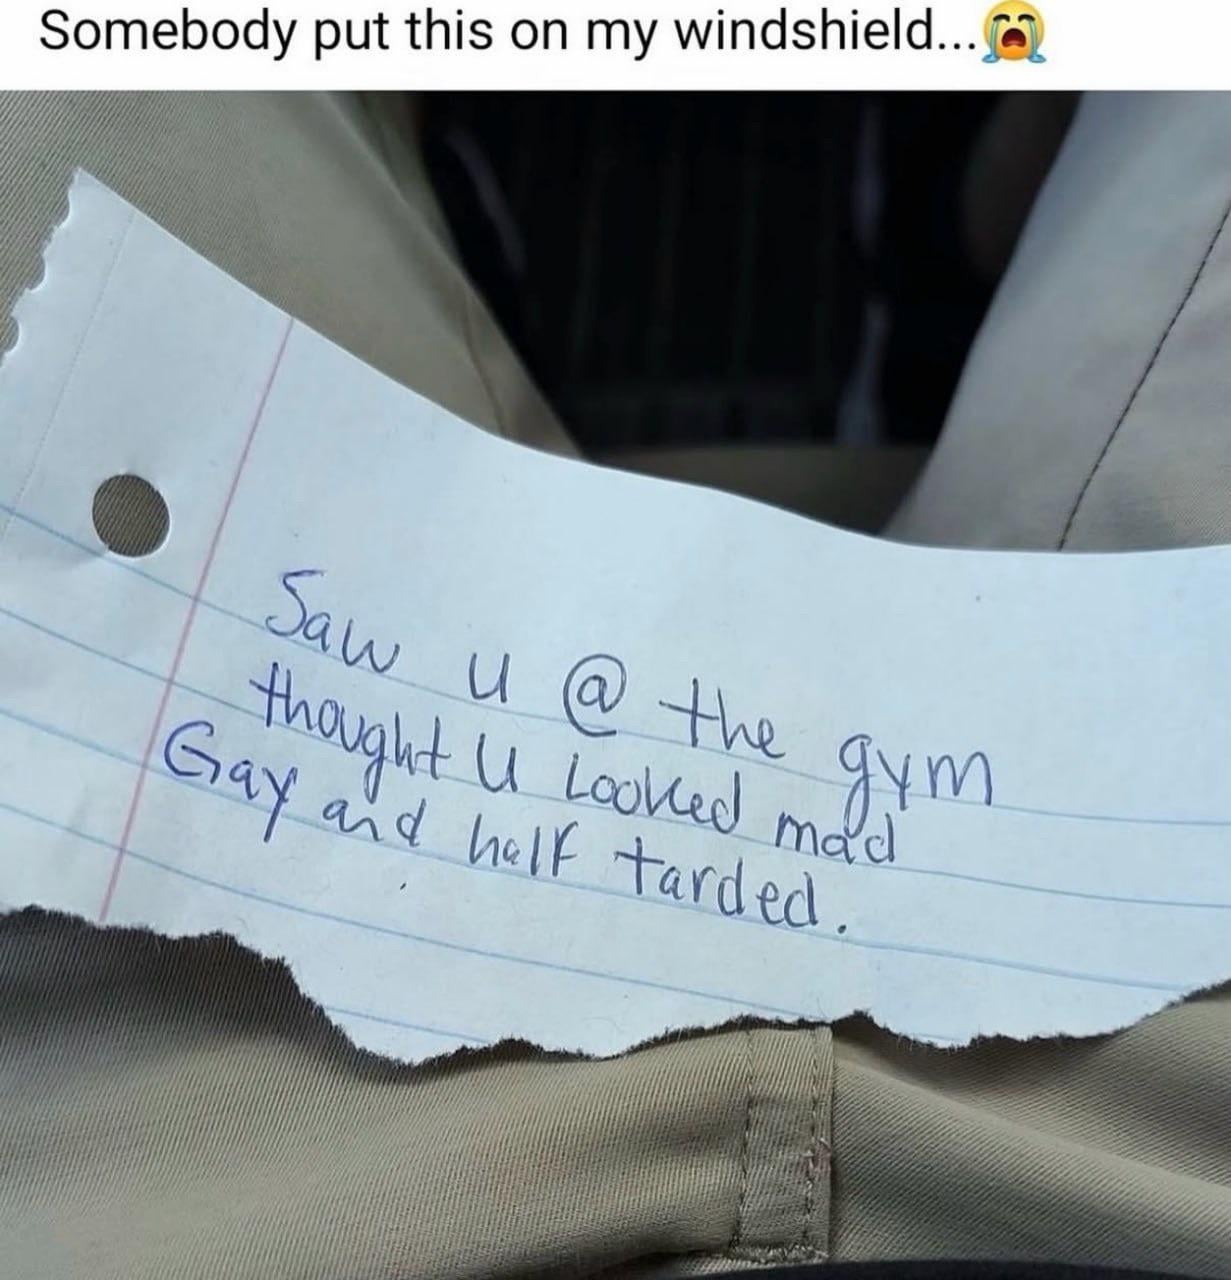 Somebody put this on my windshield...😭
Saw u @ the gym
thought u Looked mad
Gay and half tarded.